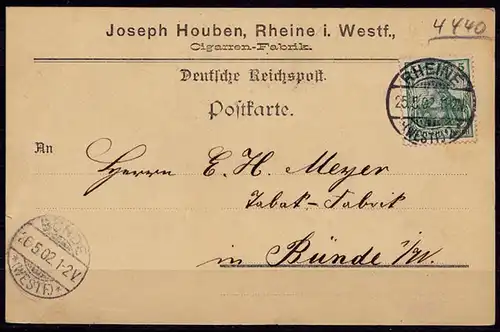 4440
Joseph Houben, Rheine i. Westf.,
Cigarren-Fabrik.
Deutsche Reichspost.
Postkarte.
RHEINE
25.5.02
(WESTF)
5
An
Herrn E. H. Meyer
Tabak-Fabrik
in Bünde i/W.
BÜNDE
26.5.02.1-2V.
*(WESTF)*